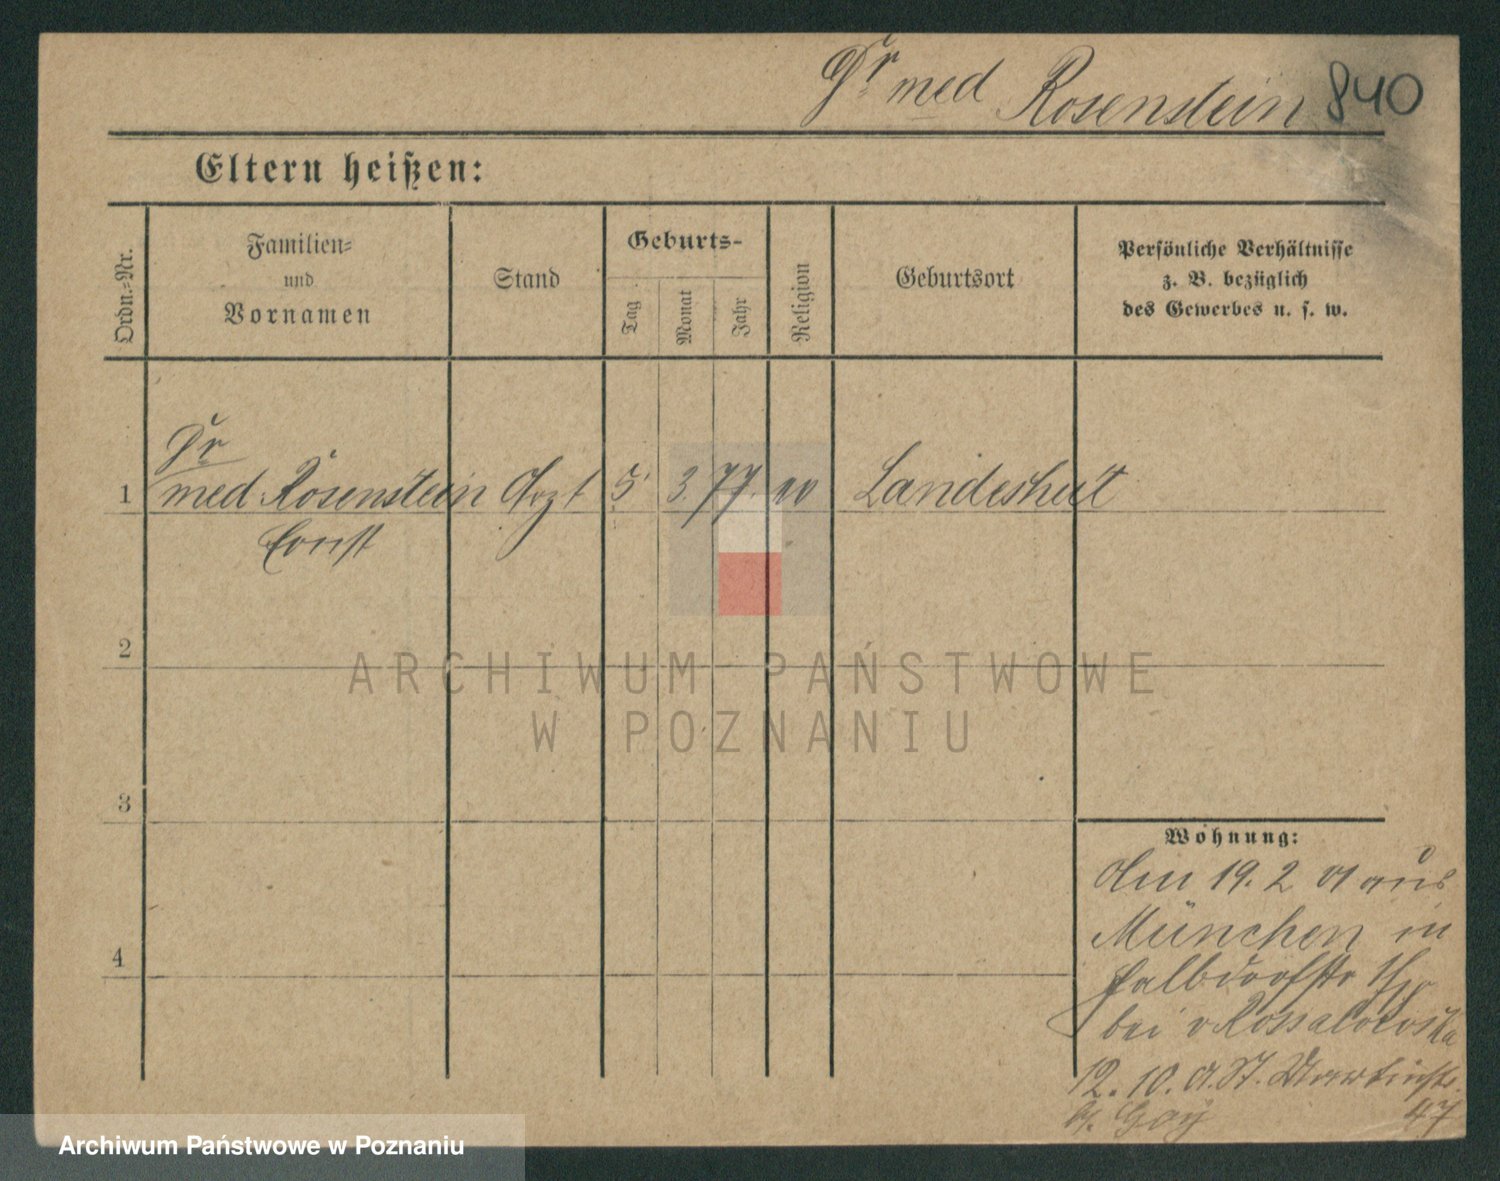 Dr med Rosenstein 840
Eltern heißen:
Ordn.-Nr.
Familien-
und
Vornamen
Stand
Geburts-
Tag
Monat
Jahr
Religion
Geburtsort
Persönliche Verhältnisse
z. B. bezüglich
des Gewerbes u. s. w.
Dr
1 med Rosenstein Arzt 5 3. 77. Landeshut
Ernst
2
ARCHIWUM PAŃSTWOWE
W POZNANIU
3
4
Wohnung:
Am 19. 2 01 aus
München in
bei
12. 10. 01. St. Martinstr.
47
Archiwum Państwowe w Poznaniu